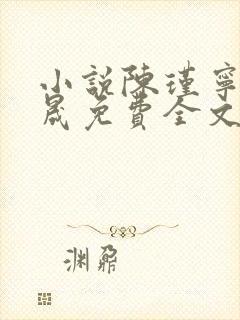 小說陳瑾寧
晟免費全文
渊鼐